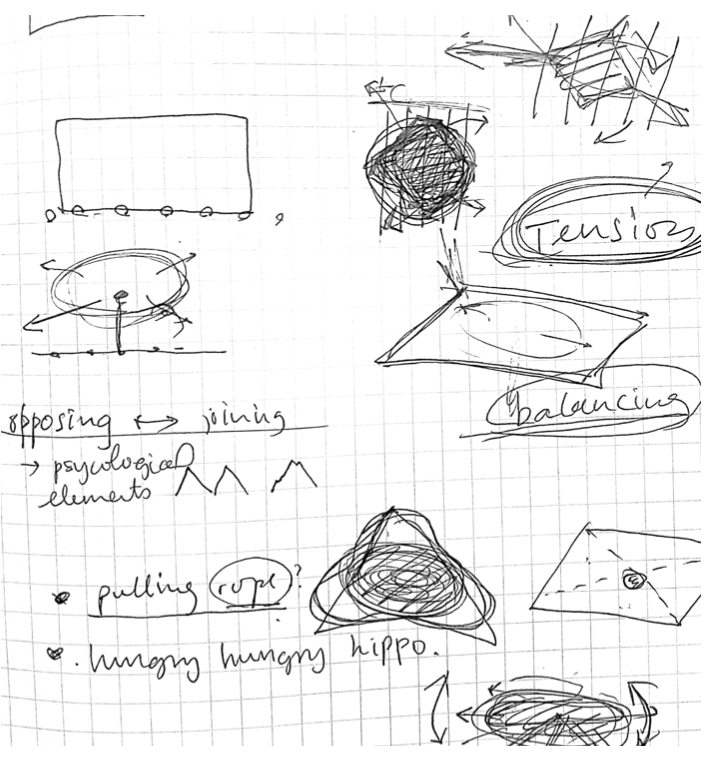 Tension
balancing
opposing ↔ joining
→ psycological
elements
• pulling rope?
• hungry hungry hippo.